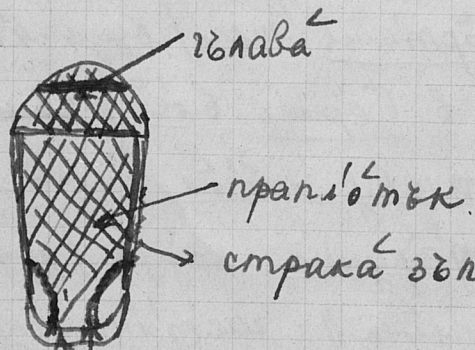 гълава
прапл'отък.
страка зъп